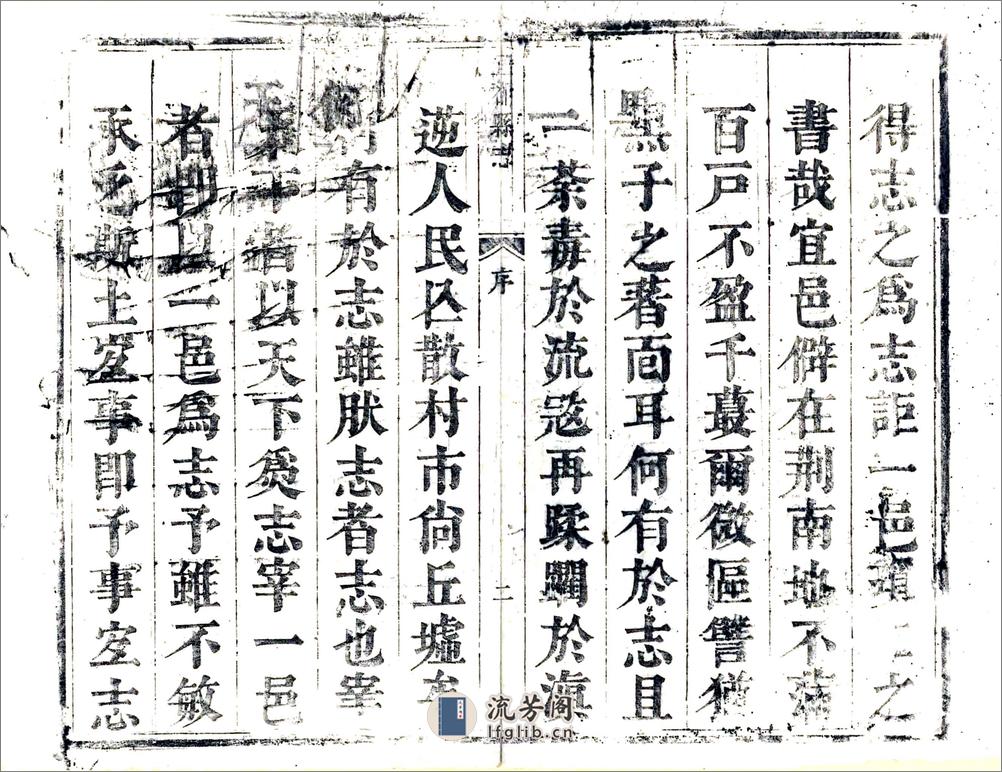 得志之爲志詎一邑之
書哉宜邑僻在荆南地不滿
百戸不盈千蕞爾微區譬猶
黑子之著面耳何有於志且
一荼毒於流寇再蹂躪於滇
都縣志 序 二
逆人民亾散村市尚丘墟
何有於志雖肰志者志也宰
天下者以天下爲志宰一邑
者則以一邑爲志予雖不敏
承乏斯土宐事即予事宐志
流芳阁
lfglib.cn